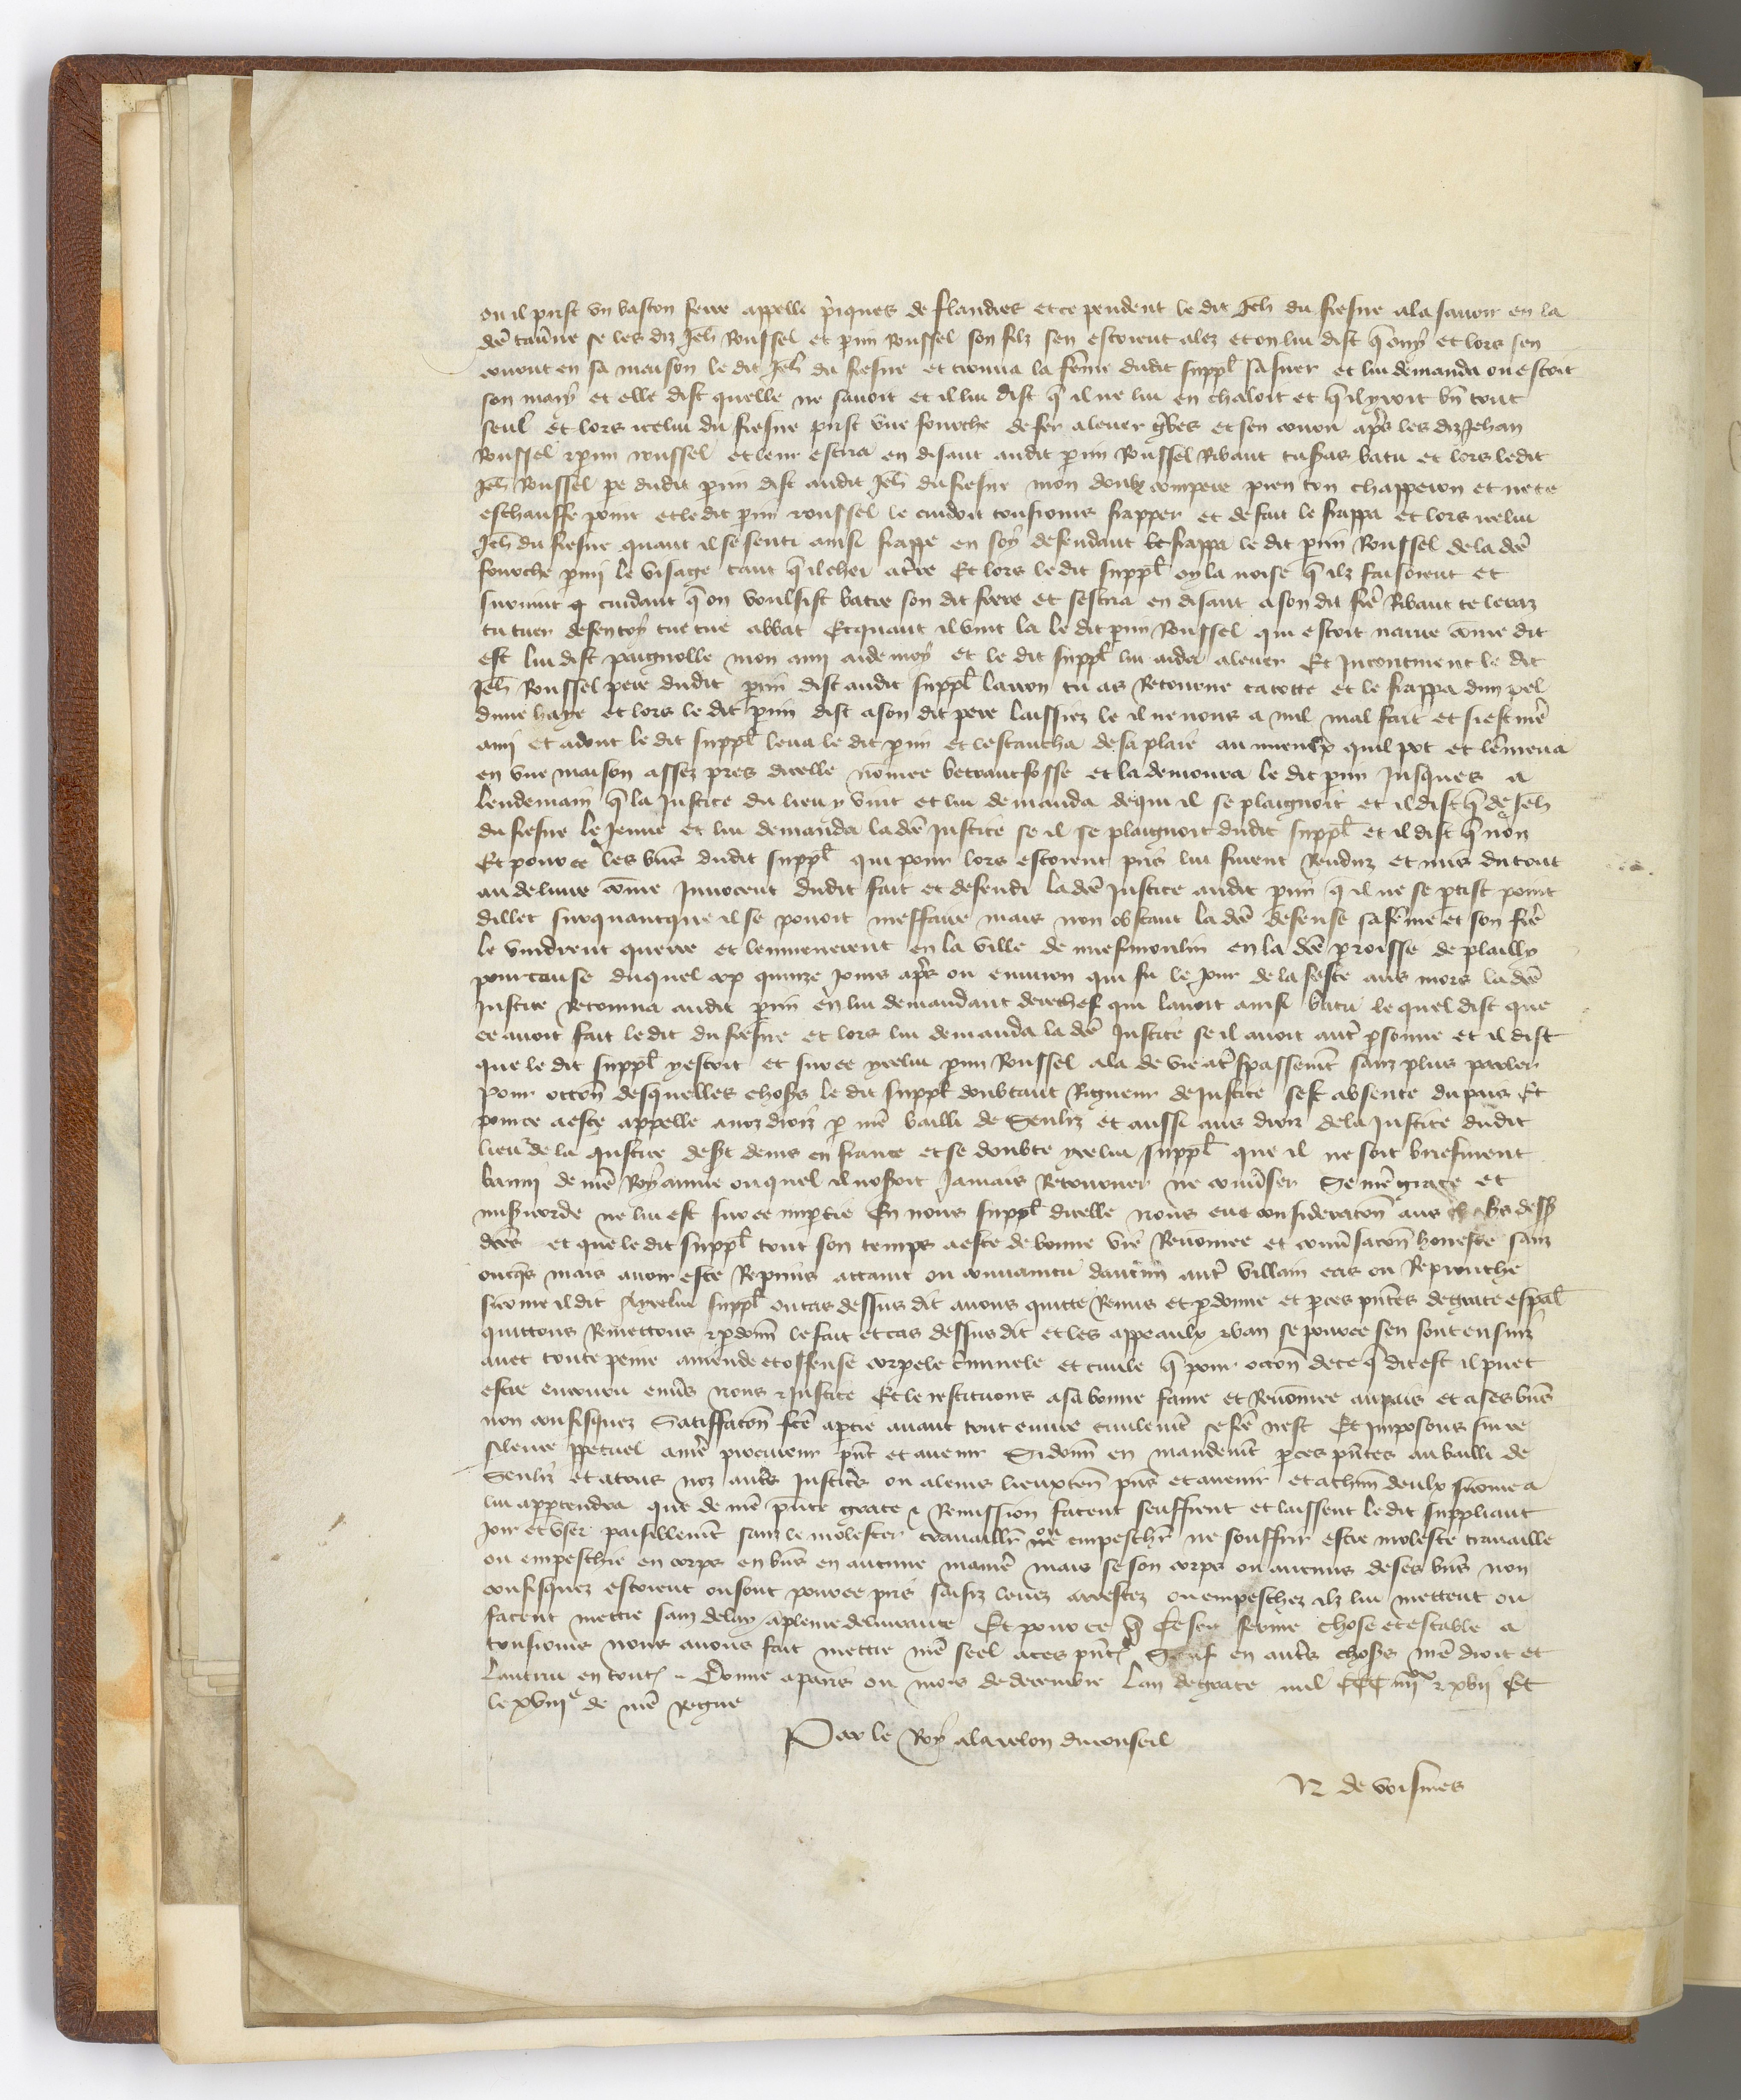 ou il prist un baston ferre appelle piques de flandres et ce pendent le dit Jeh du fresne ala savoir en la
dce tavne se les diz Jeh Roussel et prin Roussel son filz sen estoient alez et on lui dist q ouy et lors sen
en sa maison le dit Jeh du fresne et trouva la feme dudit suppl et lui demanda ou estoit
son mary et elle dist quelle ne savoit et il lui dist q il ne lui en chaloit et q il yroit bn tout
seul et lors icelui du fresne prist une fourche de fer a lever gbes et sen couru apres les diz Jehan
Roussel et prin roussel et leur escria en disant audit prin Roussel Ribaut tu seras batu et lors ledit
Jeh Roussel pe dudit prin dist audit Jeh du fresne mon doulx compere pren ton chapperon et ne te
eschauffe point et le dit prin roussel le cuidoit tousiours frapper et de fait le frappa et lors icelui
Jeh du fresne quant il se senti ainsi frappe en soy defendant frappa le dit prin Roussel de la dce
fourche pmi le visage tant q il chei a tre Et lors le dit suppl oy la noise q ilz faisoient et
survint cuidant q on voulsist batre son dit frere et sescria en disant a son dit fre Ribaut te lerraz
tu tuer defen toy tue tue abbat Et quant il vint la le dit prin Roussel qui estoit navre come dit
est lui dist paignolle mon ami aide moy et le dit suppl lui aida a lever Et Incontinent le dit
Jeh Roussel pere dudit prin dist audit suppl larron tu as Retourne ta cotte et le frappa dun pel
dune haye et lors le dit prin dist a son dit pere laissiez le il ne nous a nul mal fait et si est me
ami et adont le dit suppl leva le dit prin et lestancha de sa plaie au mieulx quil pot et lemena
en une maison assez pres dicelle nomee et la demoura le dit prin Jusques a
lendemain q la Justice du lieu y vint et lui demanda de qui il se plaignoit et il dist q de Jeh
du fresne le Jeune et lui demanda la dce Justice se il se plaignoit dudit suppl et il dist q non
Et pour ce les bns dudit suppl qui pour lors estoient pris lui furent Renduz et mis du tout
au delivre come Innocent dudit fait et defendi la dce Justice audit prin q il ne se ptist point
dillec surquantque il se povoit meffaire mais non obstant la dce defense sa feme et son fre
le vindrent querre et lenmenerent en la ville de en la dce proisse de plailly
pour cause duquel cop quinze Jours apres ou environ qui fu le Jour de la feste aus mors la dce
Justice Retourna audit prin en lui demandant derechef qui lavoit ainsi batu le quel dist que
ce avoit fait le dit du fresne et lors lui demanda la dce Justice se il avoit autre psonne et il dist
que le dit suppl y estoit et sur ce ycelui prin Roussel ala de vie a tspassemt sanz plus parler
Pour occon desquelles choses le dit suppl doubtant Rigueur de Justice sest absente du pais Et
pour ce a este appelle a noz droiz p nre bailli de Senliz et aussi aus droiz de la Justice dudit
lieu de la Justice de st denis en france et se doubte ycelui suppl que il ne soit briefment
banni de nre Royaume ouquel il noseroit Jamais Retourner ne convser Se nre grace et
misericorde ne lui est sur ce imptie En nous suppl dicelle Nous eue consideracon aus choses dess
dces et que le dit suppl tout son temps a este de bonne vie Renomee et convsacon honeste sanz
oncqs mais avoir este Reprins attaint ou convaincu daucun autre villain cas ou Reprouche
sicome il dit Aycelui suppl ou cas dessus dit avons quitte Remis et pdonne et p ces pntes de grace espal
quittons Remettons et pdonn le fait et cas dessus dit et les appeaulx et ban se pour ce sen sont ensuiz
avec toute peine amende et offense corpele crimnele et civile q pour occon de ce q dit est il puet
estre encouru envs nous et Justice Et le restituons a sa bonne fame et Renomee au pais et a ses bns
non confisquez Satiffacon fce a ptie avant tout euvre civilemt se fce nest Et Imposons sur ce
silence ppetuel a nre procureur pnt et avenir Si donn en mandemt p ces pntes au bailli de
Senliz et a tous noz autres Justiciers ou a leurs lieuxten pns et avenir et a chun deulx sicome a
lui appertendra que de nre pnte grace et Remission facent seuffrent et laissent le dit suppliant
Joir et user paisiblemt sanz le molester travaillr ne empeschr ne souffrir estre moleste travaille
ou empeschie en corps en bns en aucune maniere mais se son corps ou aucuns de ses bns non
confisquez estoient ou sont pour ce pris saisiz levez arrestez ou empeschez ilz lui mettent ou
facent mettre sanz delay a pleine delivrance Et pour ce q ce soit ferme chose et estable a
tousiours nous avons fait mettre nre seel a ces pntes Sauf en autres choses nre droit et
lautrui en toutes Donne a paris ou mois de decembre Lan de grace mil CCC iiiixx et xvii Et
le xviiie de nre regne
Par le Roy a la relon du conseil
N de voisines